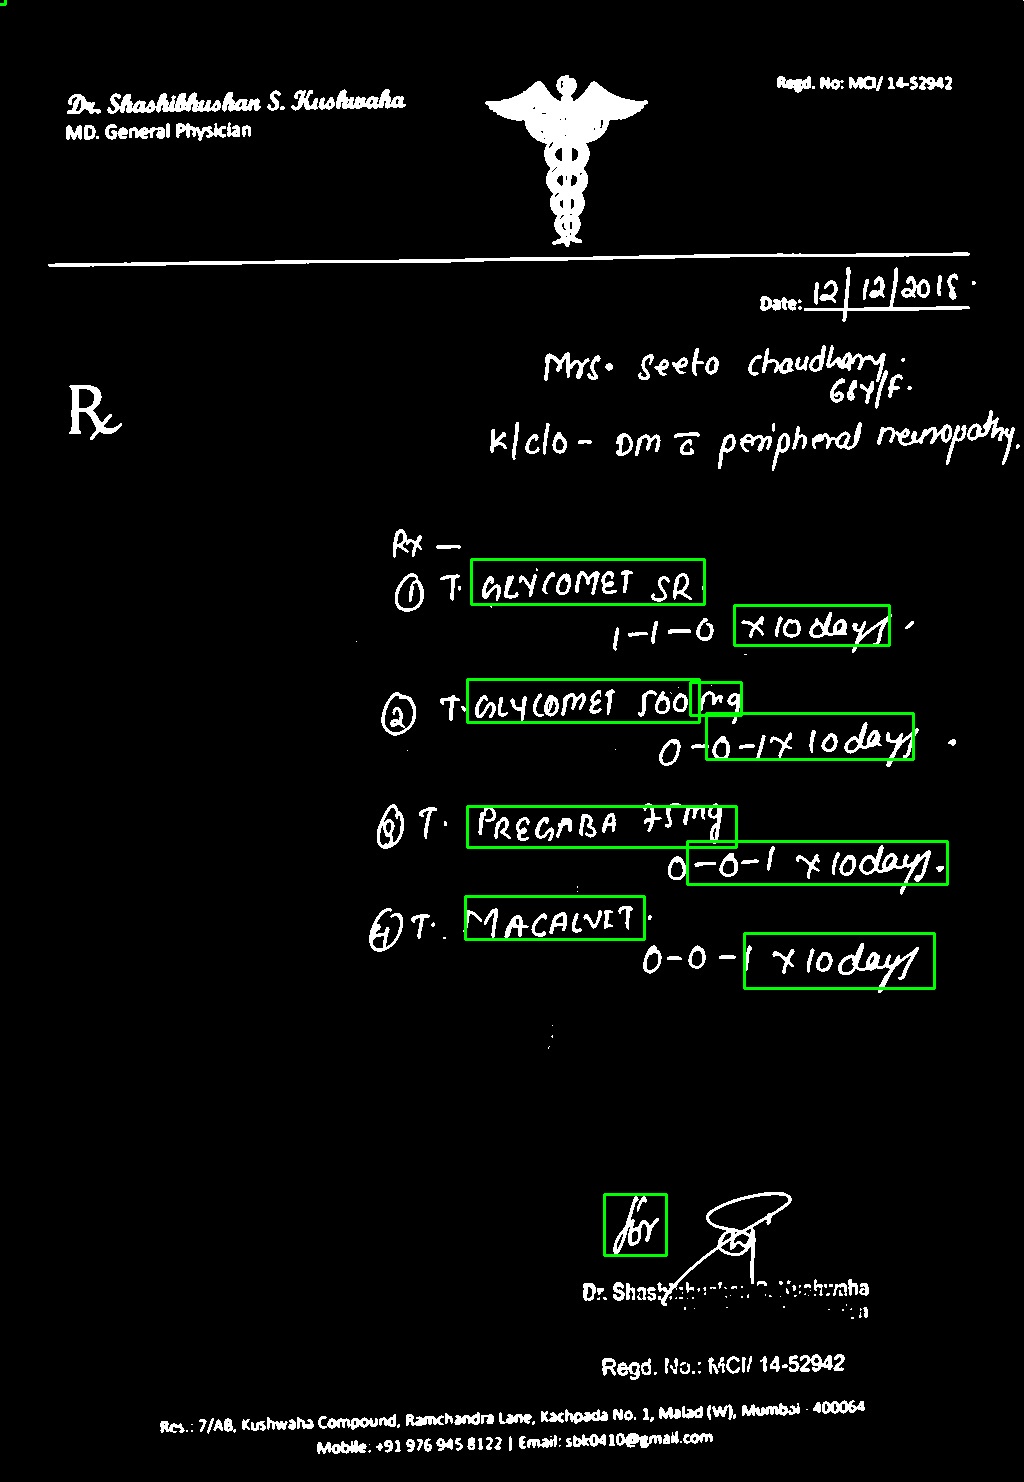 Dr. Shashibhushan S. Kushwaha
MD. General Physician
Regd. No: MCI/ 14-52942
Date: 12/12/2018.
Mrs. Seeto Chaudhary.
68Y/F.
Rx
K/c/o - DM c̄ peripheral neuropathy.
Rx —
① T. GLYCOMET SR
1-1-0 x 10 days.
② T. GLYCOMET 500 mg
0-0-1 x 10 days.
③ T. PREGABA 75 mg
0-0-1 x 10 days.
④ T. MACALVIT.
0-0-1 x 10 days
for
Dr. Shashibhushan S. Kushwaha
Regd. No.: MCI/ 14-52942
Res.: 7/AB, Kushwaha Compound, Ramchandra Lane, Kachpada No. 1, Malad (W), Mumbai - 400064
Mobile: +91 976 945 8122 | Email: sbk0410@gmail.com